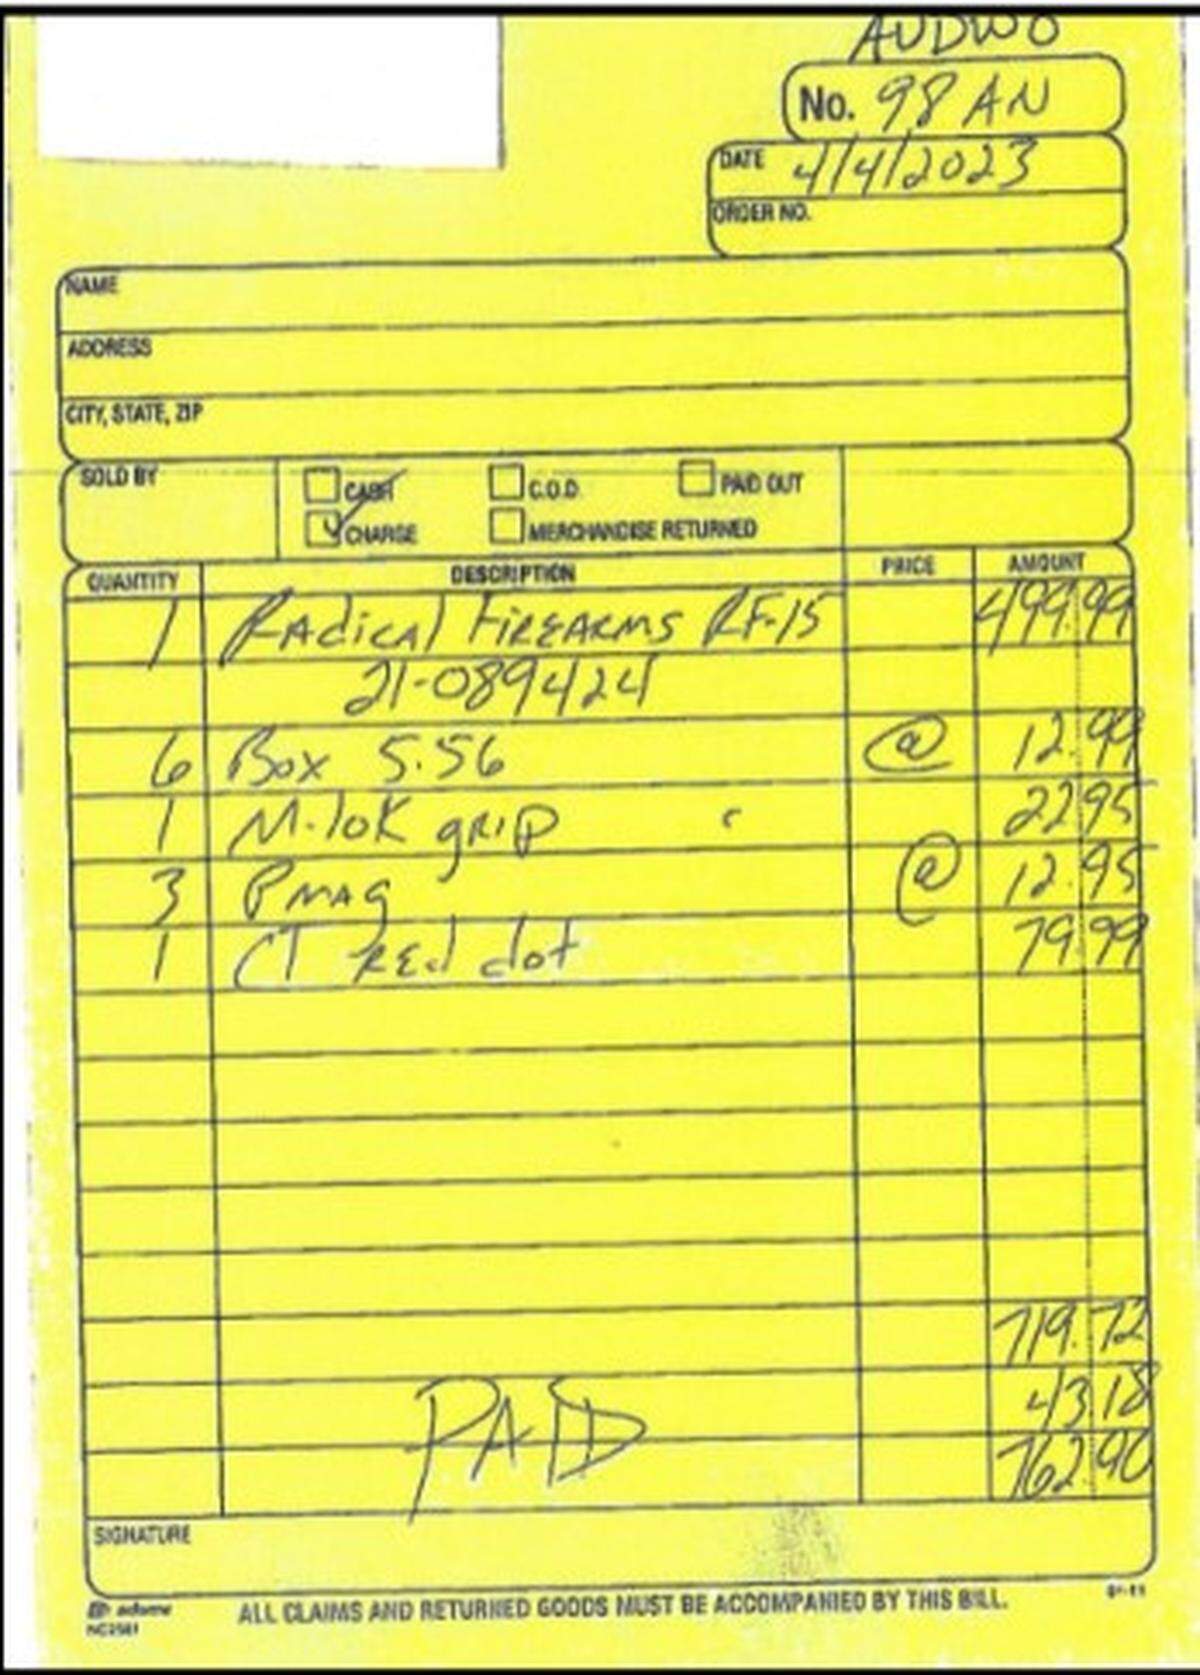 AUDWO
No. 98 AN
DATE 4/4/2023
ORDER NO.
NAME
ADDRESS
CITY, STATE, ZIP
SOLD BY CASH C.O.D. PAID OUT
CHARGE MERCHANDISE RETURNED
QUANTITY DESCRIPTION PRICE AMOUNT
1 Radical Firearms RF-15 499.99
21-089424
6 Box 5.56 @ 12.99
1 M-lok grip 22 95
3 Pmag @ 12.95
1 CT Red dot 79.99
719.72
43 18
PAID 762.90
SIGNATURE
adams
NC2581
ALL CLAIMS AND RETURNED GOODS MUST BE ACCOMPANIED BY THIS BILL.